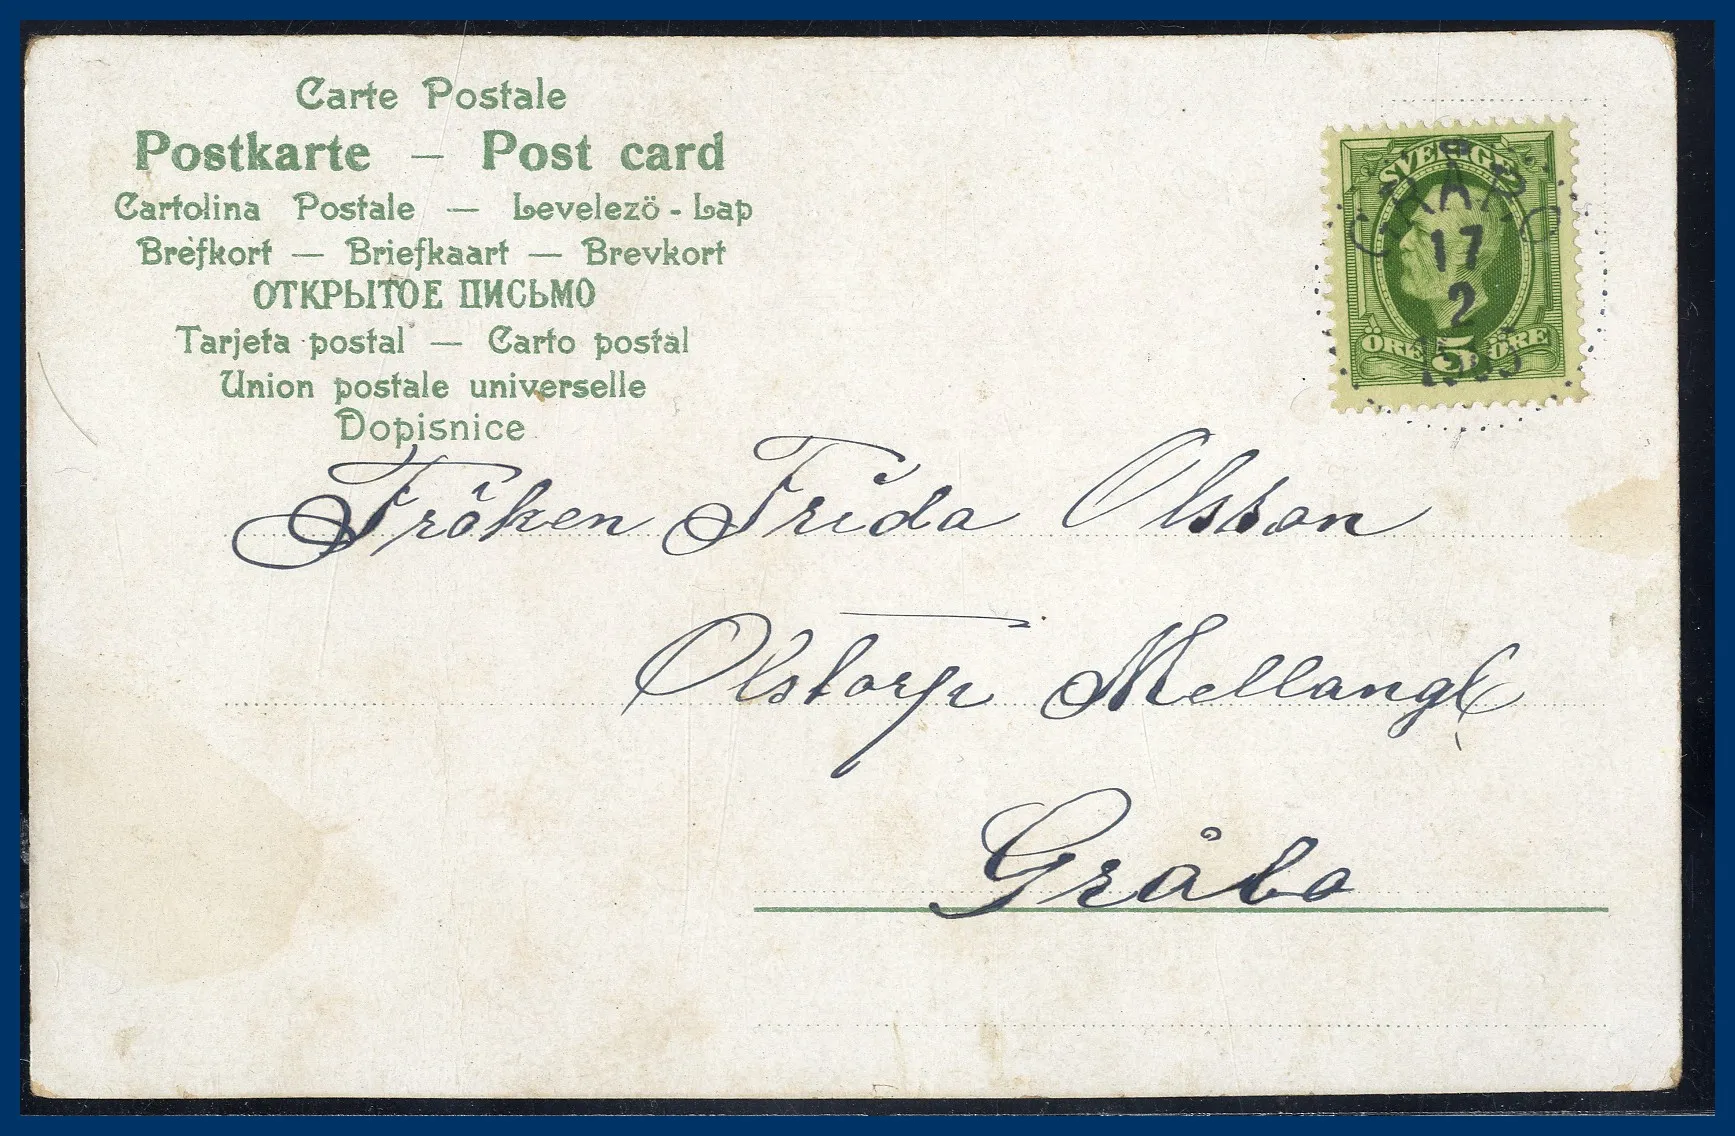 Carte Postale
Postkarte — Post card
Cartolina Postale — Levelezö - Lap
Brèfkort — Briefkaart — Brevkort
ОТКРЫТОЕ ПИСЬМО
Tarjeta postal — Carto postal
Union postale universelle
Dopisnice
SVERIGE
GRÅBO
17
2
ÖRE 5 ÖRE
Fröken Frida Olsson
Olstorp Mellang
Gråbo